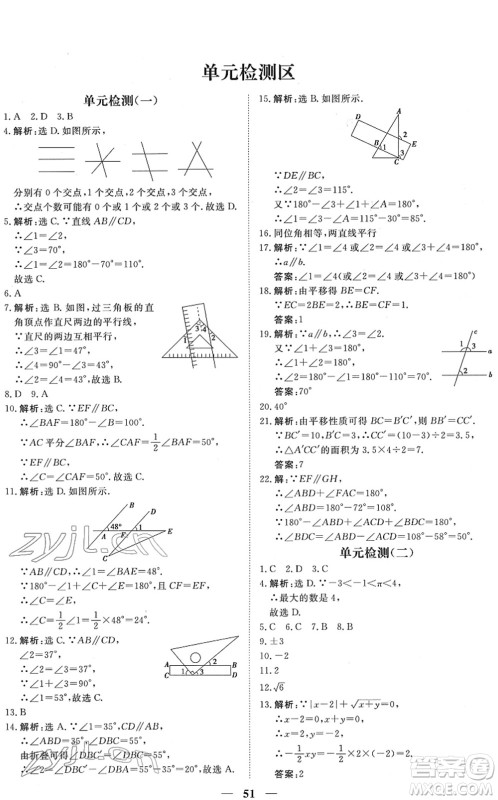 单元检测区
单元检测(一)
1. A 2. D 3. B
4. 解析:选 D. 如图所示,
分别有 0 个交点,1 个交点,2 个交点,3 个交点,
∴交点个数可能有 0 个或 1 个或 2 个或 3 个. 故选 D.
5. 解析:选 C. ∵直线 AB∥CD,
∴∠1=∠3=70°.
∵∠2+∠3=180°,
∴∠2=180°-70°=110°.
故选 C.
6. A
7. 解析:选 B. 如图,过三角板的直
角顶点作直尺两边的平行线,
∵直尺的两边互相平行,
∴∠3=∠1=47°,
∴∠4=90°-∠3=43°,
∴∠2=∠4=43°,故选 B.
8. D 9. A
10. 解析:选 C. ∵EF∥BC,
∴∠BAF=180°-∠B=100°.
∵AC 平分∠BAF,∴∠CAF=1/2∠BAF=50°,
∵EF∥BC,
∴∠C=∠CAF=50°. 故选 C.
11. 解析:选 D.
48°
A B C D E F 1
∵AB∥CD,∴∠1=48°,
∵180°-∠1+∠C+∠E=180°,
∴∠E+∠C=∠1,
∵∠C=∠E,
∴∠C=1/2∠1=1/2×48°=24°. 故选 D.
12. 解析:选 A.
∵AB∥CD,
∴∠2=∠3=37°.
∵∠1+∠3=90°,
∴∠1=53°,故选 A.
13. B
14. 解析:选 A. ∵∠1=35°,CD∥AB,
∴∠ABD=35°,∠DBC=55°,
由折叠可得∠DBC'=∠DBC=55°,
∴∠2=∠DBC'-∠DBA=55°-35°=20°.
15. 解析:选 B. 如图所示.
A B C D E 1 2 3
∵DE∥BC,
∴∠2=∠3=115°.
又∵180°-∠3+∠1+90°=180°,
∴∠1=∠3-90°=115°-90°=25°. 故选 B.
16. 同位角相等,两直线平行
17. 解析:∵∠1=∠4 或∠2=∠4 或∠3+∠4=180°,
∴a∥b.
答案:∠1=∠4(或∠2=∠4 或∠3+∠4=180°)
18. 解析:由平移得 BE=CF.
∵BE=1,∴CF=1.
答案:1
19. 解析:∵a∥b,∴∠1=∠3,
∵∠1=110°,∴∠3=110°,
∴∠2=180°-∠3=180°-110°=70°.
答案:70°
20. 40°
21. 解析:由平移性质可得 BC=B'C',BC'=BC-CC',
∴BC'=3,CC'=0.5,∴B'C'=3.5,
∴△A'B'C'的面积为 3.5×4÷2=7.
答案:7
22. 解:∵EF∥GH,
∴∠ABD+∠FAB=180°,
∴∠ABD+∠FAC+∠BAC=180°,
∵∠ABD=∠ACD+∠BDC,
∴∠ACD+∠BDC+∠FAC+∠BAC=180°.
单元检测(二)
1. C 2. D 3. C
4. 解析:选 D. ∵-3<-1<π<4,
∴最大的数是 4,
故选 D.
5. C 6. C 7. B 8. B
9. ±3
10. -2
11. 2
12. √6
13. 解析:∵|x-2|+√(x+y)=0,
∴x-2=0,x+y=0,
∴x=2,y=-2,
∴-1/2xy=-1/2×2×(-2)=2.
答案:2
51
zyjl.cn
作业精灵
答案圈
MXQE.COM